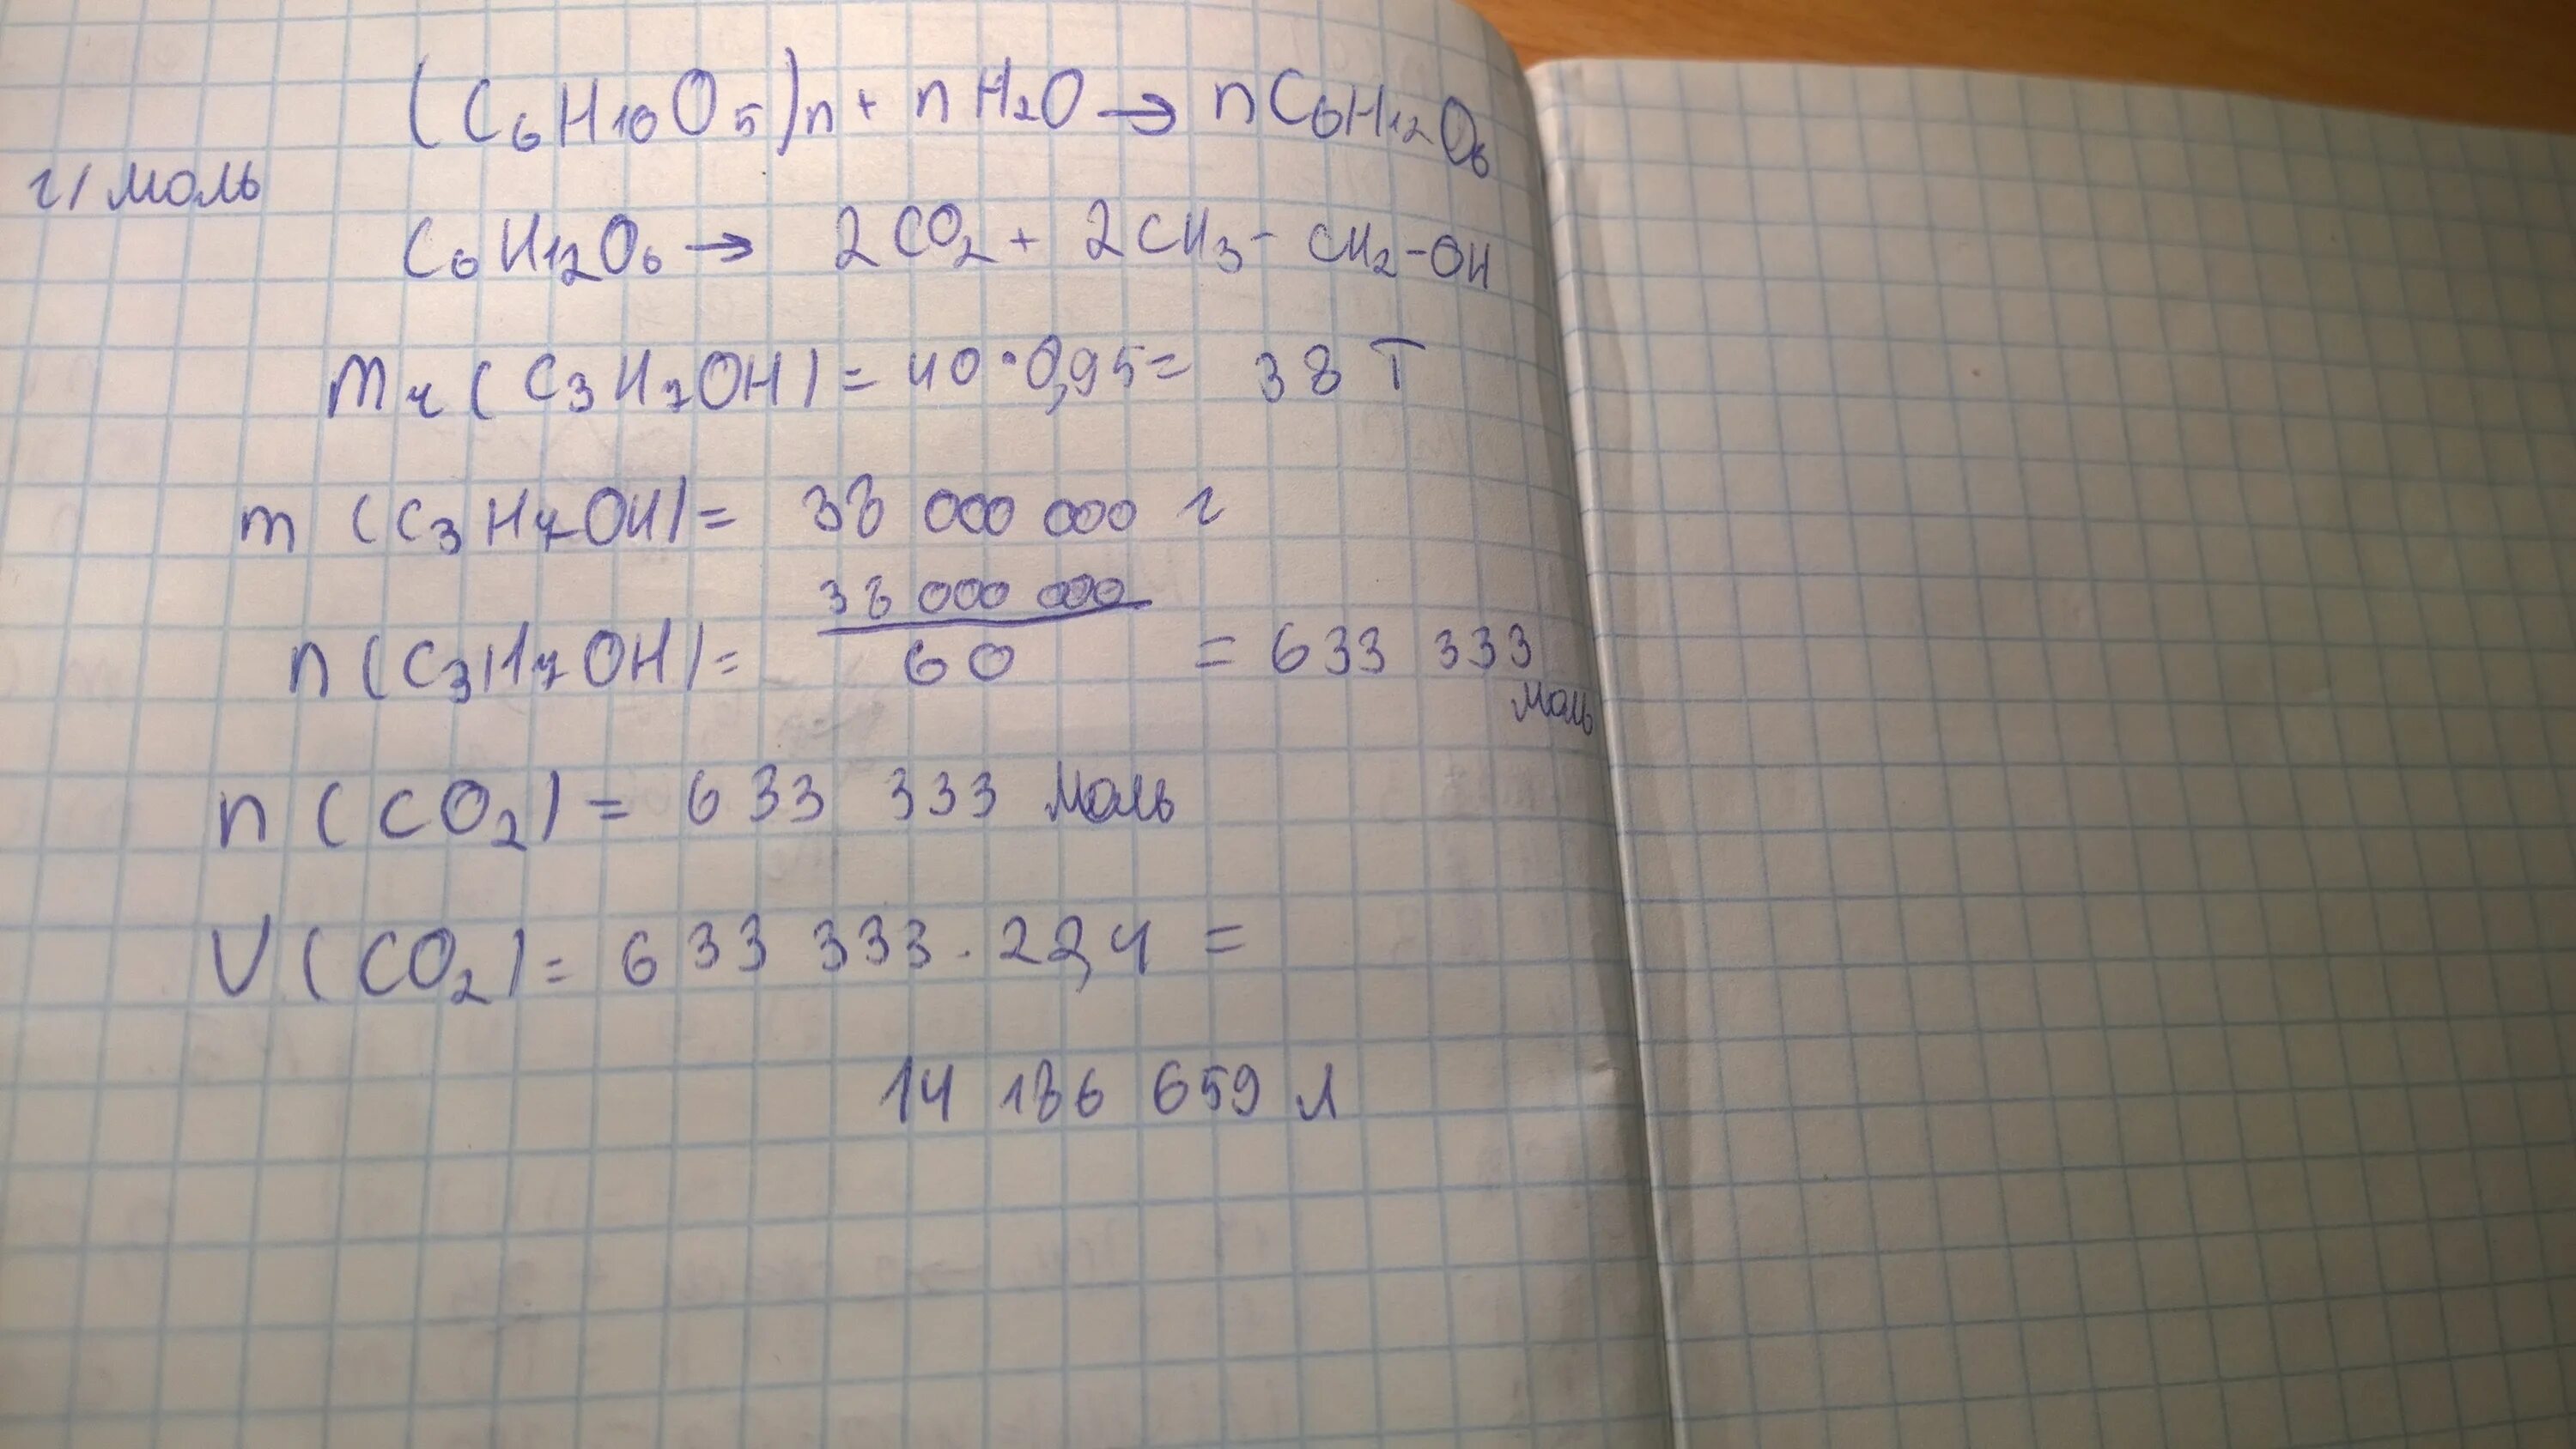 (C6H10O5)n + nH2O → nC6H12O6
г/моль
C6H12O6 → 2CO2 + 2CH3 - CH2 - OH
mч (C3H7OH) = 40 · 0,95 = 38 Т
m (C3H7OH) = 38 000 000 г
n (C3H7OH) = 38 000 000 / 60 = 633 333 моль
n (CO2) = 633 333 моль
V (CO2) = 633 333 · 22,4 =
14 186 659 л